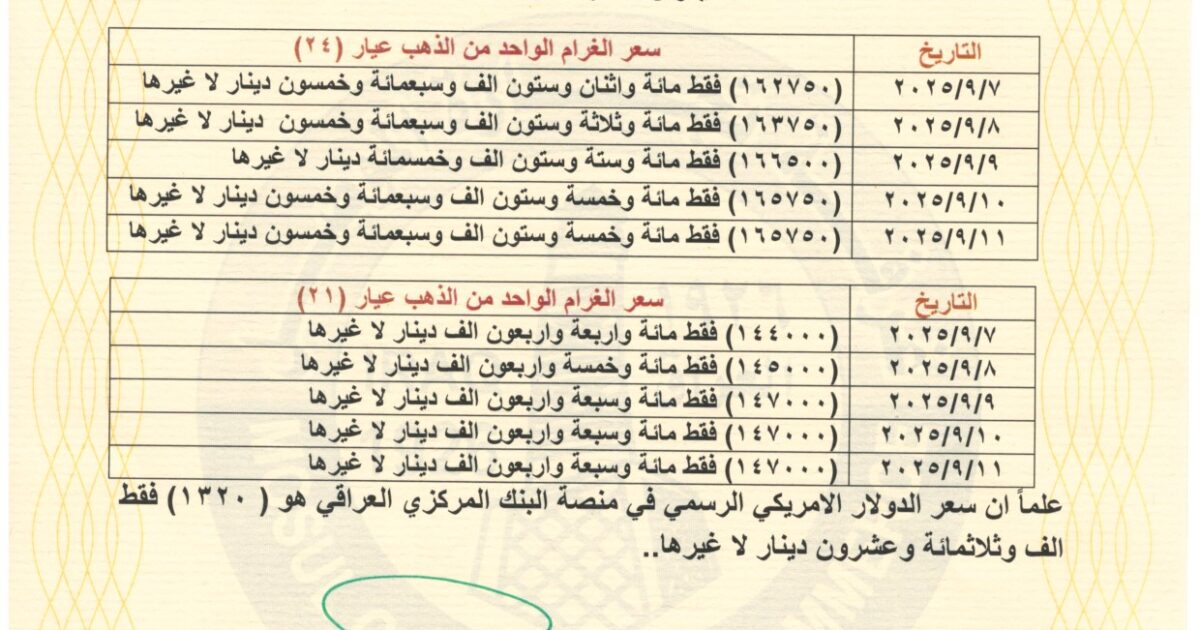 التاريخ سعر الغرام الواحد من الذهب عيار (٢٤)
٢٠٢٥/٩/٧ (١٦٢٧٥٠) فقط مائة واثنان وستون الف وسبعمائة وخمسون دينار لا غيرها
٢٠٢٥/٩/٨ (١٦٣٧٥٠) فقط مائة وثلاثة وستون الف وسبعمائة وخمسون دينار لا غيرها
٢٠٢٥/٩/٩ (١٦٦٥٠٠) فقط مائة وستة وستون الف وخمسمائة دينار لا غيرها
٢٠٢٥/٩/١٠ (١٦٥٧٥٠) فقط مائة وخمسة وستون الف وسبعمائة وخمسون دينار لا غيرها
٢٠٢٥/٩/١١ (١٦٥٧٥٠) فقط مائة وخمسة وستون الف وسبعمائة وخمسون دينار لا غيرها
التاريخ سعر الغرام الواحد من الذهب عيار (٢١)
٢٠٢٥/٩/٧ (١٤٤٠٠٠) فقط مائة واربعة واربعون الف دينار لا غيرها
٢٠٢٥/٩/٨ (١٤٥٠٠٠) فقط مائة وخمسة واربعون الف دينار لا غيرها
٢٠٢٥/٩/٩ (١٤٧٠٠٠) فقط مائة وسبعة واربعون الف دينار لا غيرها
٢٠٢٥/٩/١٠ (١٤٧٠٠٠) فقط مائة وسبعة واربعون الف دينار لا غيرها
٢٠٢٥/٩/١١ (١٤٧٠٠٠) فقط مائة وسبعة واربعون الف دينار لا غيرها
علماً ان سعر الدولار الامريكي الرسمي في منصة البنك المركزي العراقي هو ( ١٣٢٠) فقط
الف وثلاثمائة وعشرون دينار لا غيرها..